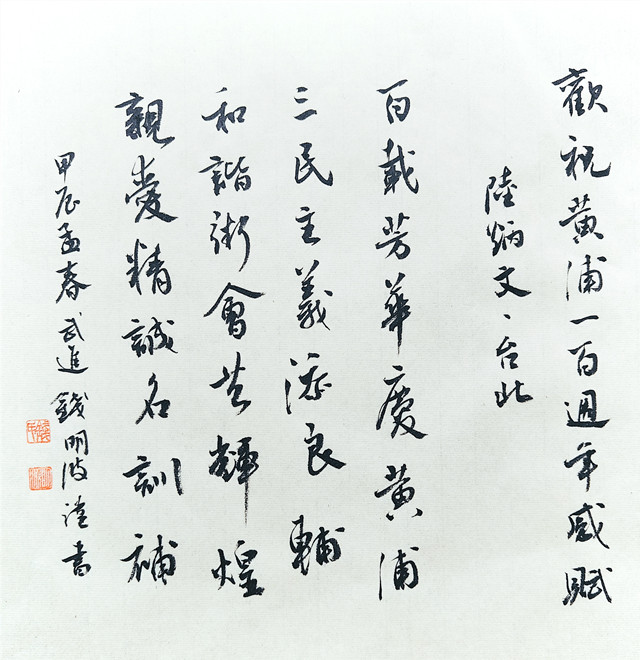 歡祝黃浦一百週年感賦
陸炳文、台北
百載芳華慶黃浦
三民主義添良輔
和諧街會共輝煌
親愛精誠名訓補
甲辰孟春武進錢明波謹書